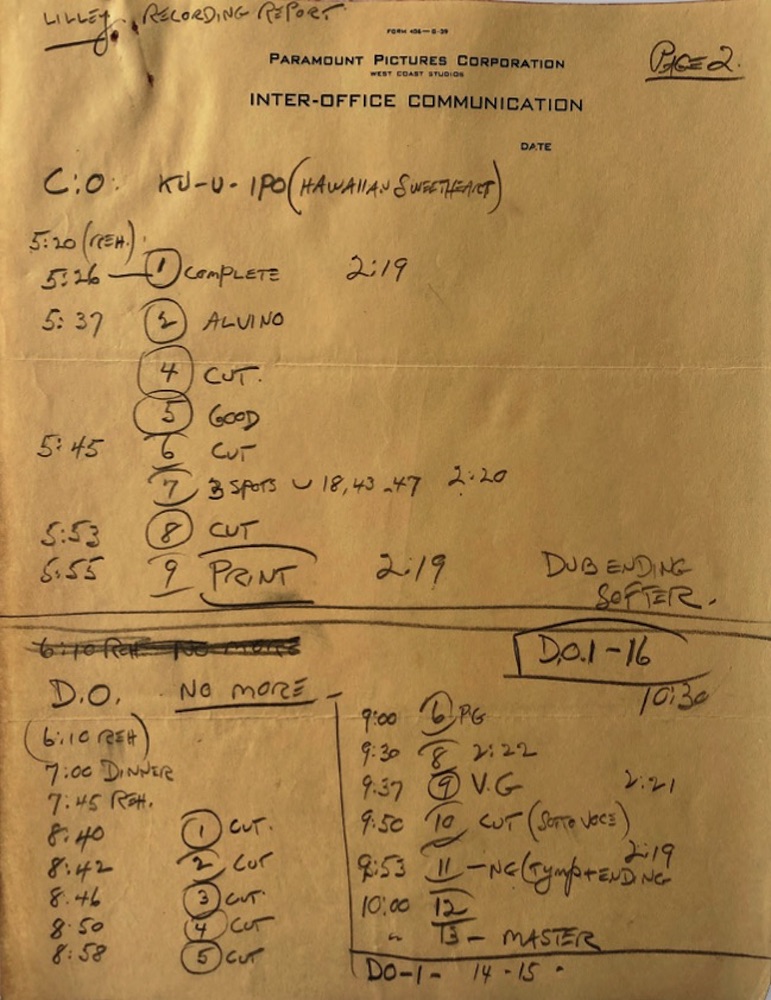 LILLEY, RECORDING REPORT
FORM 404—6-39
PARAMOUNT PICTURES CORPORATION
WEST COAST STUDIOS
PAGE 2.
INTER-OFFICE COMMUNICATION
DATE
C:O: KU-U-IPO (HAWAIIAN SWEETHEART)
5:20 (REH.)
5:26 — 1 COMPLETE 2:19
5:37 2 ALVINO
4 CUT.
5 GOOD
5:45 6 CUT
7 3 SPOTS 18, 43-47 2:20
5:53 8 CUT
5:55 9 PRINT 2:19 DUB ENDING
SOFTER.
6:10 REH NO MORE
D.O.1-16
D.O. NO MORE -
10:30
(6:10 REH)
7:00 DINNER
7:45 REH.
8:40 1 CUT.
8:42 2 CUT
8:46 3 CUT.
8:50 4 CUT
8:58 5 CUT
9:00 6 PG
9:30 8 2:22
9:37 9 V.G 2:21
9:50 10 CUT (SOTTO VOCE)
2:19
9:53 11 - NG (TYMP + ENDING
10:00 12
" 13 - MASTER
DO-1- 14-15 -